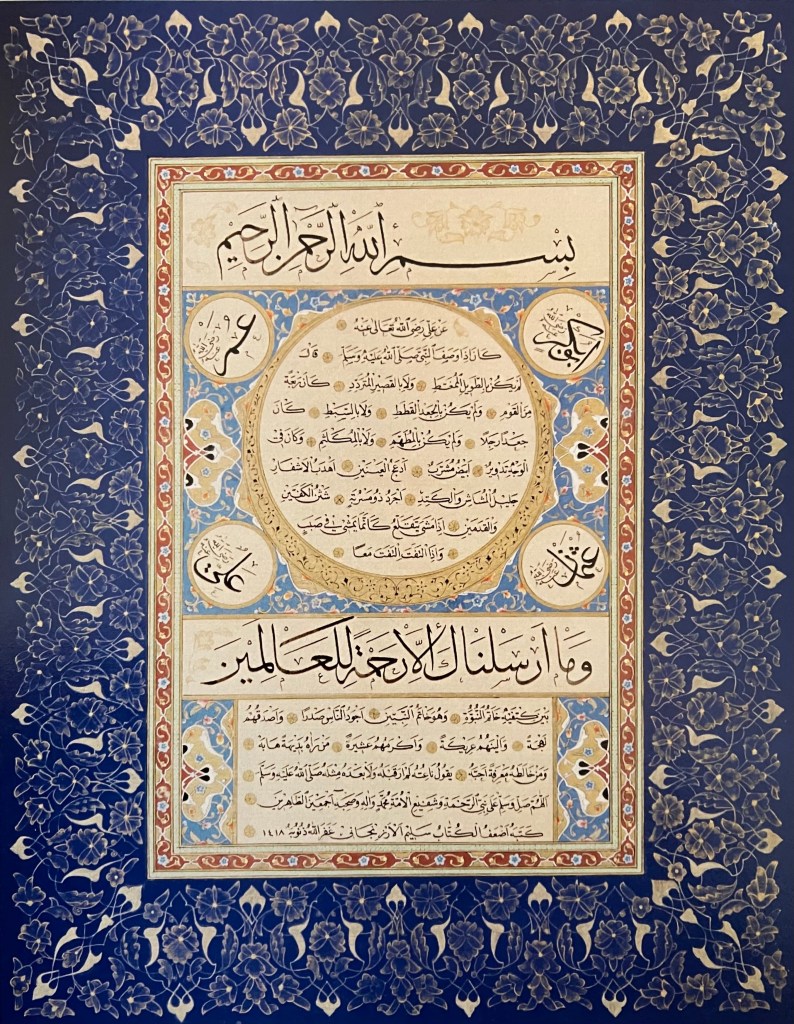 بِسْمِ اللهِ الرَّحْمٰنِ الرَّحِيمِ
ابوبكر رضي الله عنه
عمر رضي الله عنه
عن علي رضي الله تعالى عنه
كان اذا وصف النبي صلى الله عليه وسلم قال
لم يكن بالطويل الممغط ولا بالقصير المتردد كان ربعة
من القوم ولم يكن بالجعد القطط ولا بالسبط كان
جعدا رجلا ولم يكن بالمطهم ولا بالمكلثم وكان في
الوجه تدوير ابيض مشرب ادعج العينين اهدب الاشفار
جليل المشاش والكتد اجرد ذو مسربة شثن الكفين
والقدمين اذا مشى يتقلع كانما يمشي في صبب
واذا التفت التفت معا
عثمان رضي الله عنه
علي رضي الله عنه
وَمَا اَرْسَلْنَاكَ اِلَّا رَحْمَةً لِلْعَالَمِينَ
بين كتفيه خاتم النبوة وهو خاتم النبيين اجود الناس صدرا واصدقهم
لهجة والينهم عريكة واكرمهم عشيرة من رآه بديهة هابه
ومن خالطه معرفة احبه يقول ناعته لم ار قبله ولا بعده مثله صلى الله عليه وسلم
اللهم صل وسلم على نبي الرحمة وشفيع الامة محمد وآله وصحبه اجمعين الطاهرين
كتبه اضعف الكتاب غفر الله ذنوبه ١٤١٨